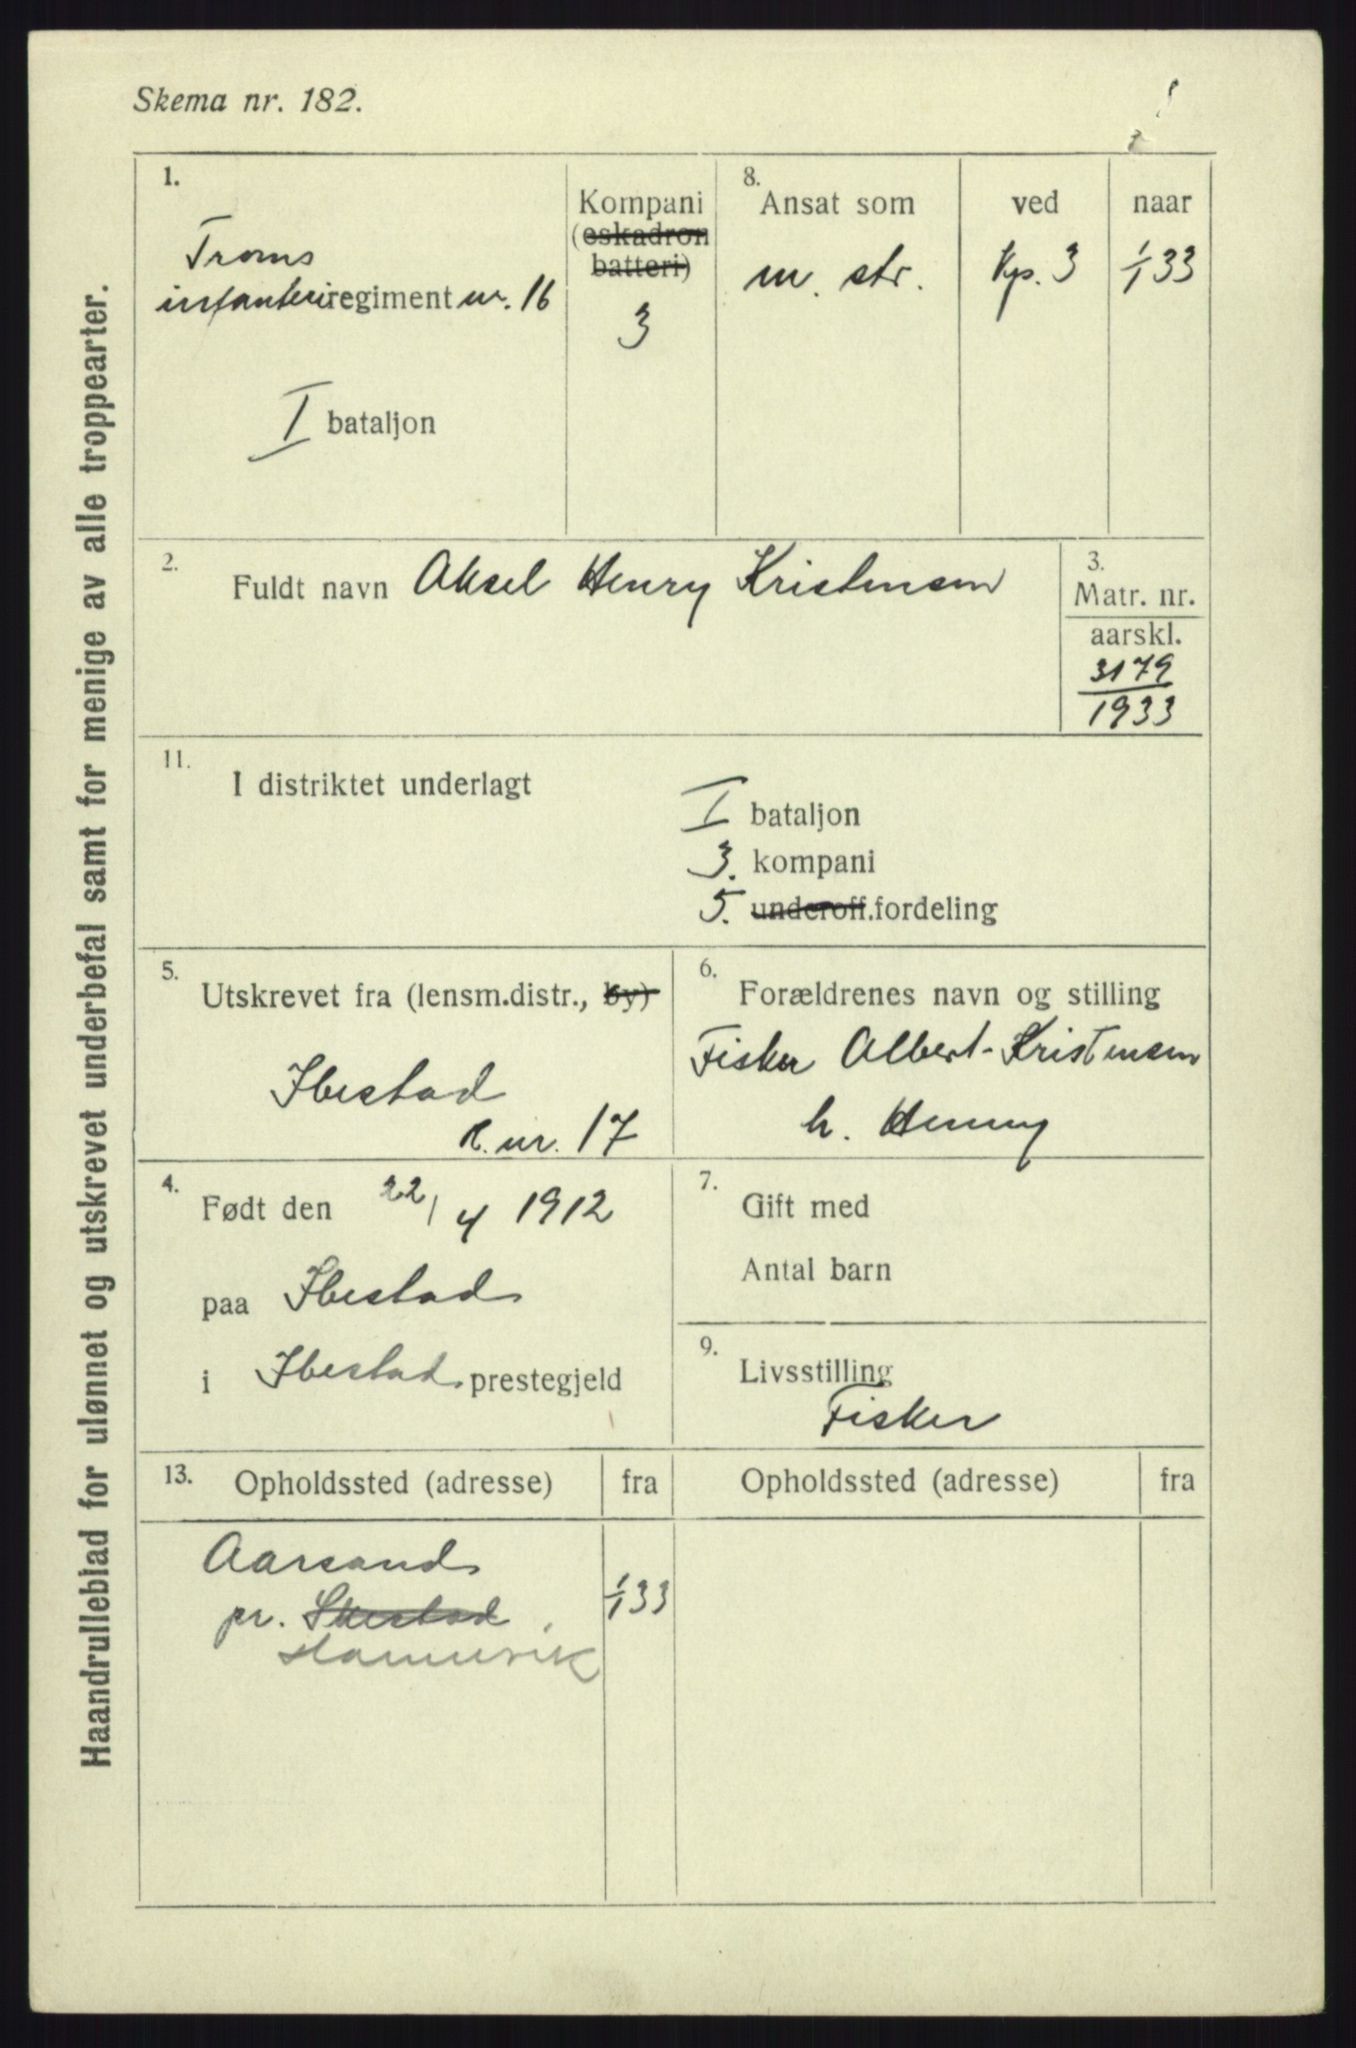 Skema nr. 182.
Haandrulleblad for ulønnet og utskrevet underbefal samt for menige av alle troppearter.
1.
Troms
infanteriregiment nr. 16
I bataljon
Kompani
(eskadron
batteri)
3
8.
Ansat som
m. str.
ved
Kp. 3
naar
1/1 33
2.
Fuldt navn Aksel Henry Kristensen
3.
Matr. nr.
aarskl.
3179
1933
11.
I distriktet underlagt
I bataljon
3. kompani
5. underoff.fordeling
5.
Utskrevet fra (lensm.distr., by)
Ibestad
R. nr. 17
6.
Forældrenes navn og stilling
Fisker Albert Kristensen
h. Henny
4.
Født den 22/4 1912
paa Ibestad
i Ibestad prestegjeld
7.
Gift med
Antal barn
9.
Livsstilling
Fisker
13.
Opholdssted (adresse)
fra
Opholdssted (adresse)
fra
Aarsand
1/1 33
pr. Ibestad
Hamnvik